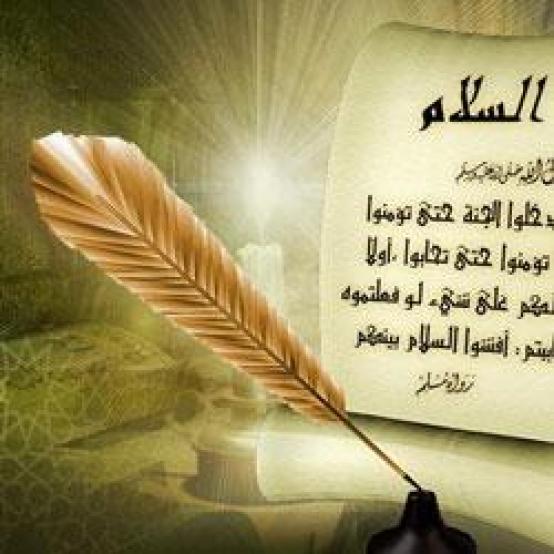 السلام
صلى الله عليه وسلم
الجنة حتى تؤمنوا
تؤمنوا حتى تحابوا، أولا
على شيء لو فعلتموه
أفشوا السلام بينكم
رواه مسلم